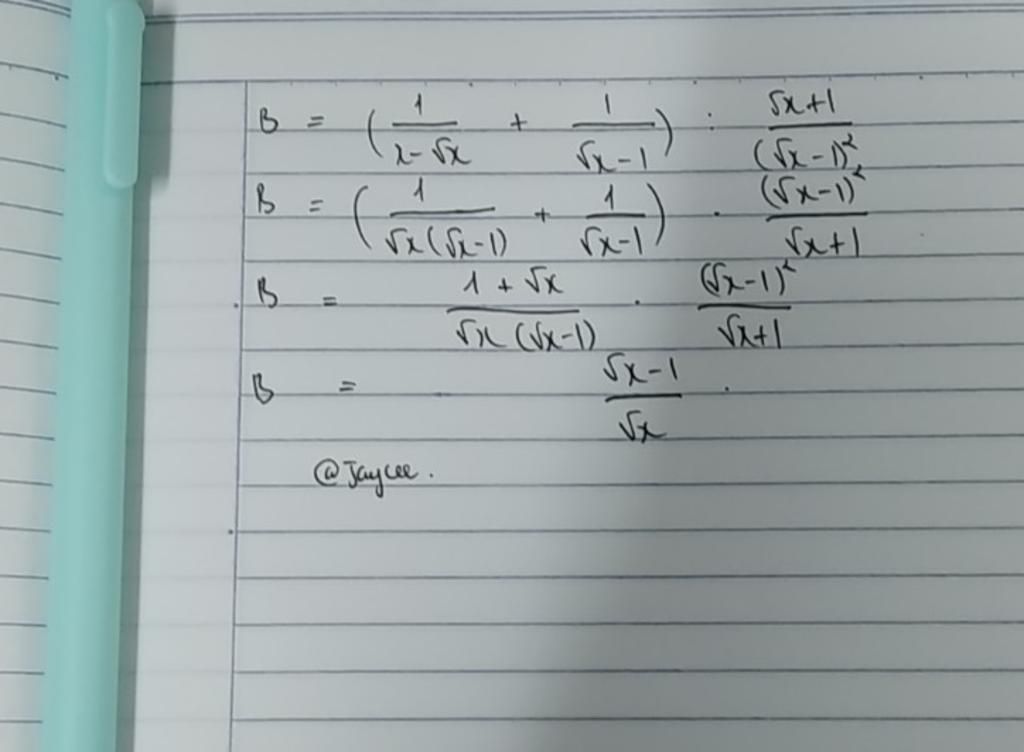 B = (1/(x-√x) + 1/(√x-1)) : (√x+1)/(√x-1)²
B = (1/(√x(√x-1)) + 1/(√x-1)) . (√x-1)²/(√x+1)
B = (1+√x)/(√x(√x-1)) . (√x-1)²/(√x+1)
B = (√x-1)/√x .
@Jaycee.